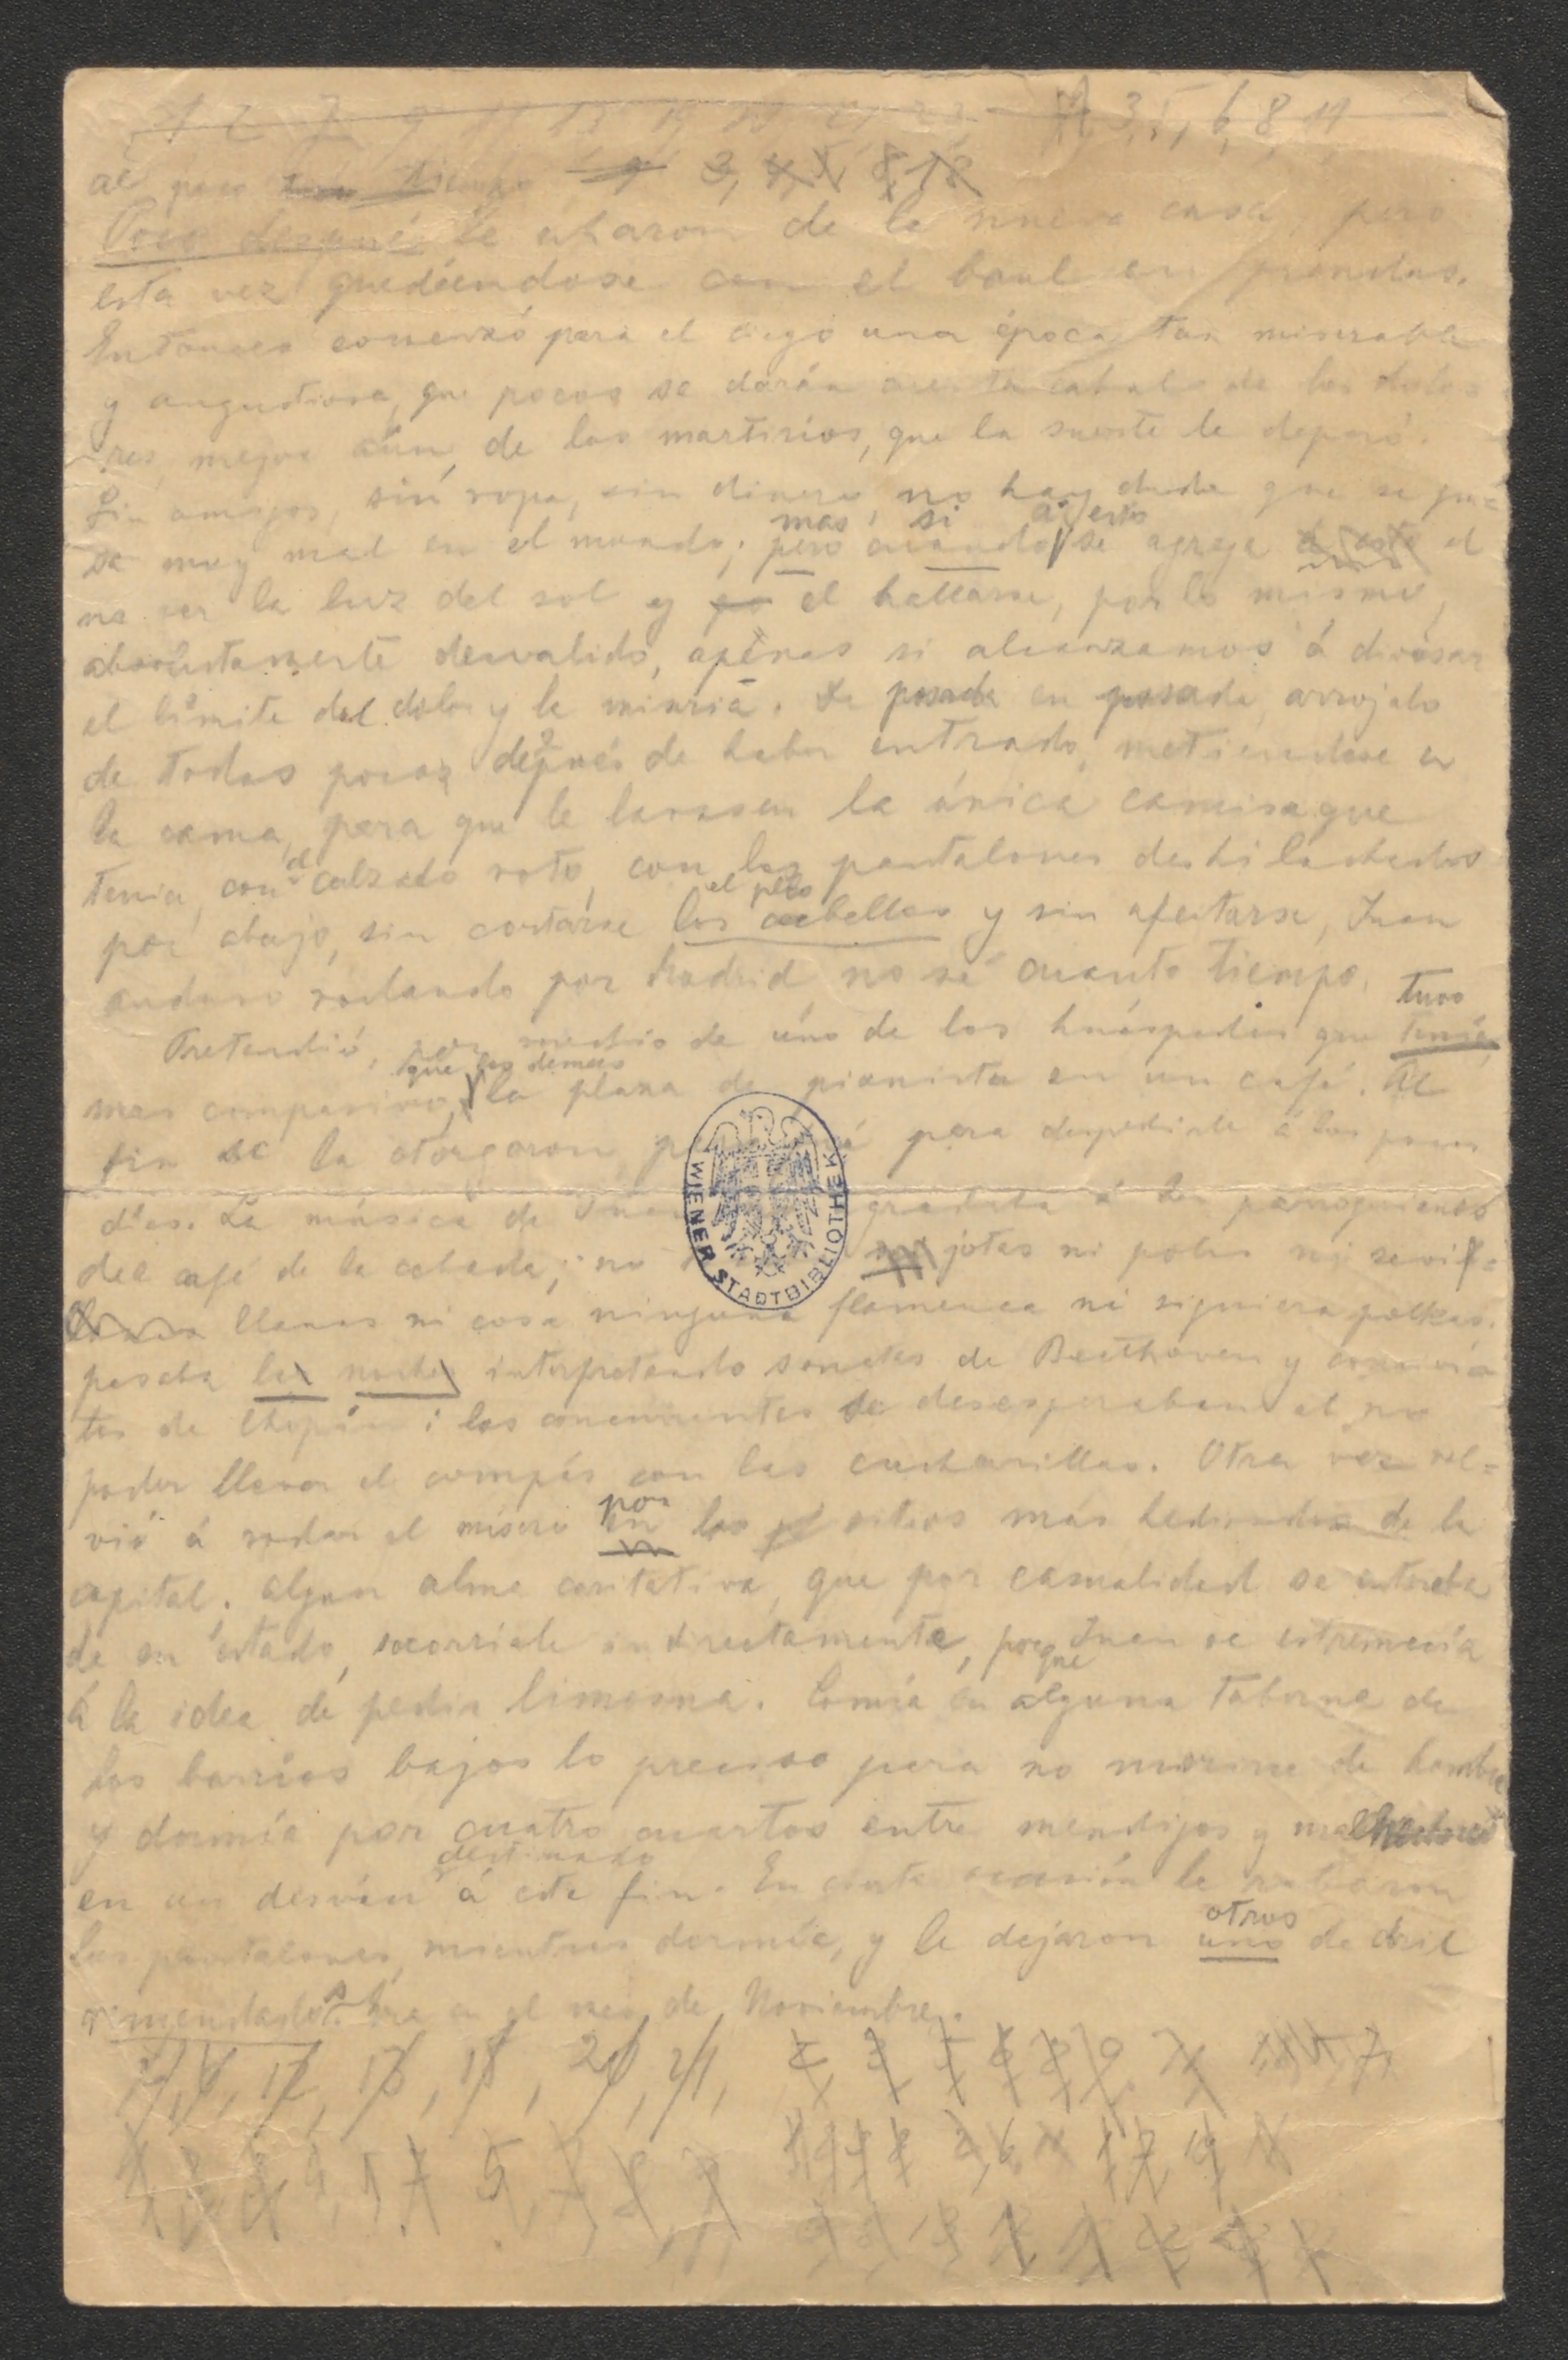 1 2 7 9 11 13 3, 5, 6, 8, 11
al poco tiempo 3, 4, 5, 8, 18
Poco despué le echaron de la nueva casa, pero
esta vez quedándose con el baul en prendas.
Entonces comenzó para el ciego una época tan miserable
y angustiosa, que pocos se darán cuenta cabal de los dolo=
res, mejor aún, de los martirios, que la suerte le deparó.
Sin amigos, sin ropa, sin dinero, no hay duda que se pa=
mas si á esto
sa muy mal en el mundo; pero cuando se agrega á esto el
no ver la luz del sol y el hallarse, por lo mismo,
absolutamente desvalido, apenas si alcanzamos á divisar
el límite del dolor y la miseria. De posada en posada, arrojado
de todas pocos después de haber entrado, metiendose en
la cama, para que le lavasen la única camisa que
el
tenia, con calzado roto, con los pantalones deshilachados
el pelo
por abajo, sin cortarse los cabellos y sin afeitarse, Juan
anduvo rodando por Madrid no sé cuanto tiempo.
tuvo
Pretendió, por medio de uno de los huéspedes que tenía,
que los demas
mas compasivo, la plaza de pianista en un café. Al
fin se la otorgaron, para despedirle á los pocos
dias. La música de Juan gradaba á los parroquianos
del café de la cebada; no jotas ni polos ni sevi=
llanas ni cosa ninguna flamenca ni siquiera polkas.
pasaba la noche interpretando sonatas de Beethoven y concier
tos de Chopín: los concurrentes se desesperaban al no
poder llevar el compás con las cucharillas. Otra vez vol=
por
vió á rodar el mísero en los sitios más hediondos de la
capital. Algun alma caritativa, que por casualidad se enteraba
de su estado, socorríale indirectamente, porque Juan se estremecía
á la idea de pedir limosna. Comía en alguna taberna de
los barrios bajos lo preciso para no morirse de hambre
y dormía por cuatro cuartos entre mendigos y malhechores
destinado
en un desván á este fin. En cierta ocasión le robaron
otros
los pantalones, mientras dormía, y le dejaron uno de dril
remendados. Era en el mes de Noviembre.
WIENER STADTBIBLIOTHEK